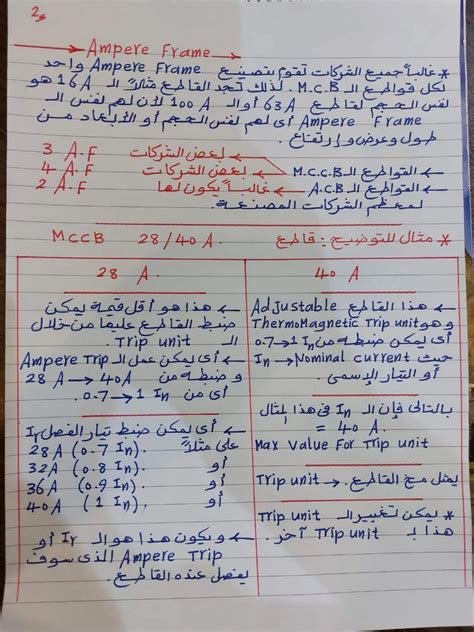 2
Ampere Frame
* غالباً جميع الشركات تقوم بتصنيع Ampere Frame واحد
لكل قواطع الـ M.C.B. لذلك تجد القاطع مثلاً الـ 16A هو
نفس الحجم لقاطع 63A أو الـ 100A لأن لهم نفس الـ
Ampere Frame أى لهم نفس الحجم أو الأبعاد من
طول وعرض وإرتفاع.
← القواطع الـ M.C.C.B لبعض الشركات 3 A.F
بعض الشركات 4 A.F
← القواطع الـ A.C.B غالباً يكون لها 2 A.F
لمعظم الشركات المصنعة.
* مثال للتوضيح: قاطع MCCB 28/40 A.
40 A.
← هذا القاطع Adjustable
وهو ThermoMagnetic Trip unit
أى يمكن ضبطه من 0.7→1 In
حيث In → Nominal current
أو التيار الإسمى.
بالتالى فإن الـ In فى هذا المثال
= 40 A.
Max Value For Trip unit
Trip unit → يمثل مخ القاطع.
* يمكن تغيير الـ Trip unit
هذا بـ Trip unit آخر.
28 A.
← هذا هو أقل قيمة يمكن
ضبط القاطع عليها من خلال
الـ Trip unit.
أى يمكن عمل الـ Ampere Trip
وضبطه من 28 A → 40A
أى من 0.7→1 In.
← أى يمكن ضبط تيار الفصل Ir
على مثلاً 28A (0.7 In).
أو 32A (0.8 In).
أو 36A (0.9 In).
أو 40A (1 In).
← ويكون هذا هو الـ Ir أو
Ampere Trip الذى سوف
يفصل عنده القاطع.